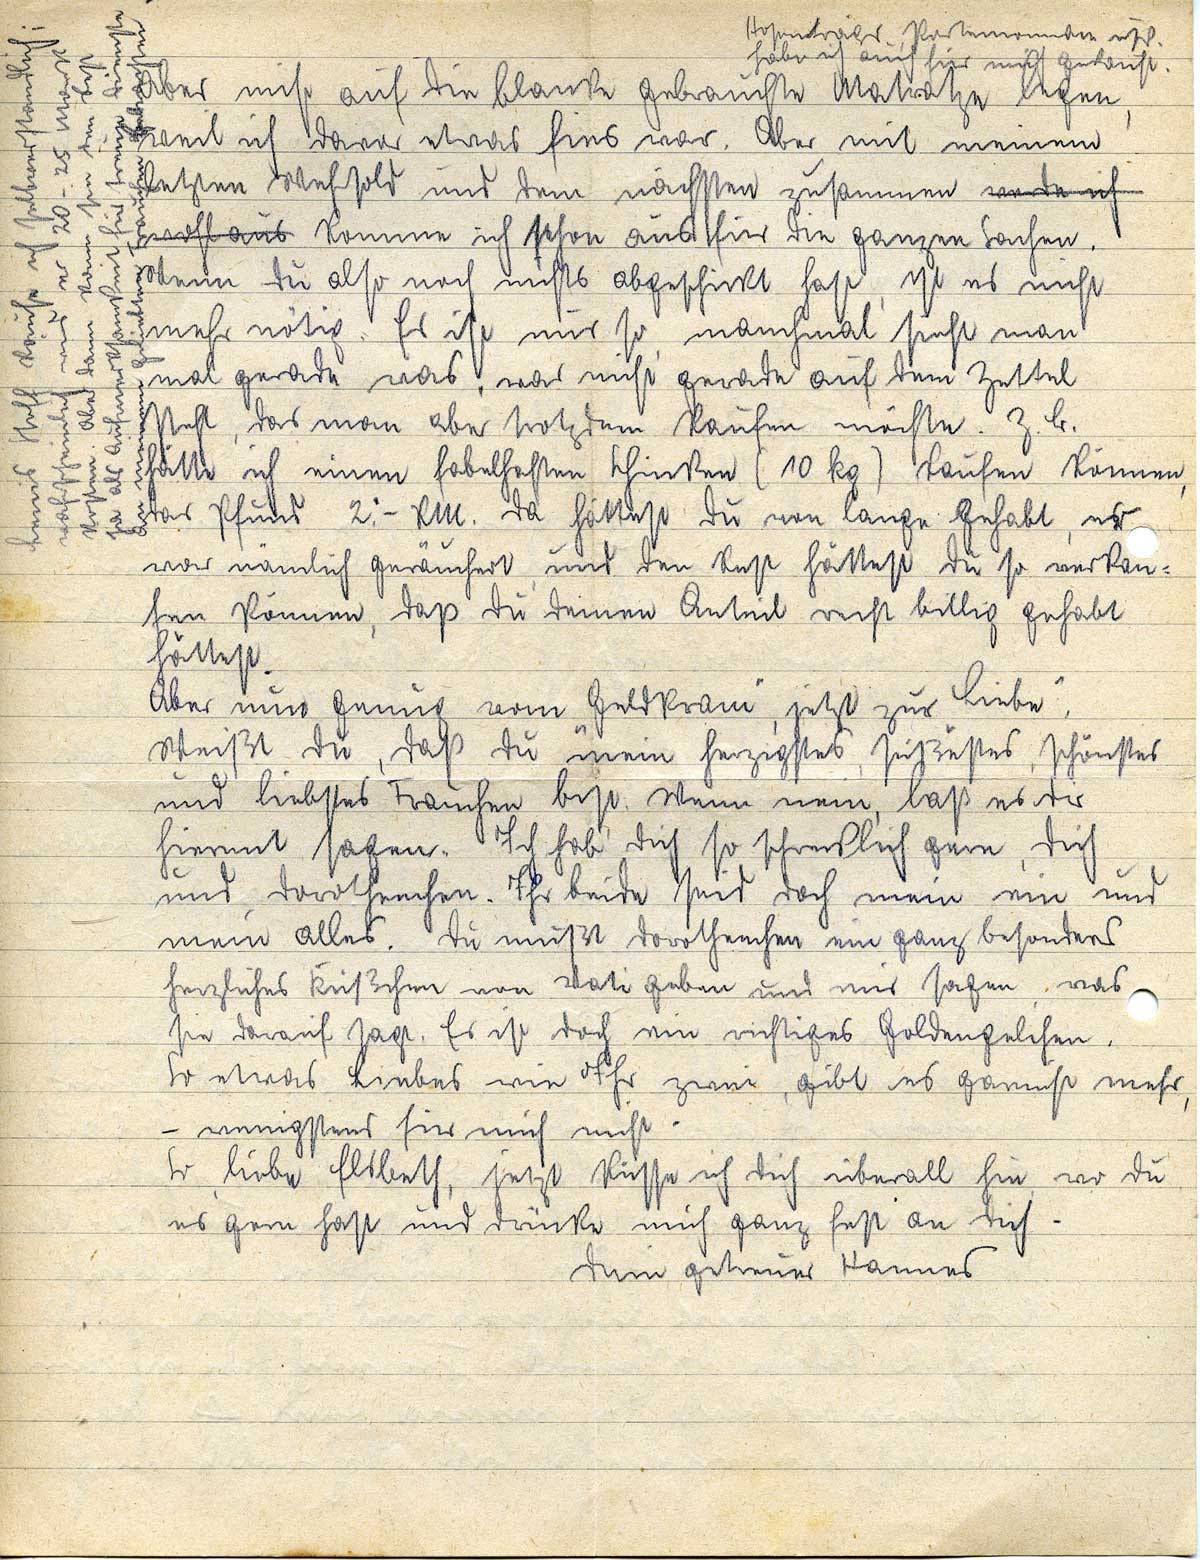 Hosenträger, Portemonnaie usf.
habe ich auch für mich gekauft.
aber nicht auf die blanke gebrauchte Matratze legen,
weil ich davor etwas fies war. Aber mit meinem
letzten Wehrsold und dem nächsten zusammen werde ich
wohl aus komme ich schon aus für die ganzen Sachen.
Wenn Du also noch nichts abgeschickt hast, ist es nicht
mehr nötig. Es ist nur so, manchmal sieht man
mal gerade was, was nicht gerade auf dem Zettel
steht, das man aber trotzdem kaufen möchte. Z. B.
hätte ich einen fabelhaften Schinken (10 kg) kaufen können,
das Pfund 2.- RM. Da hättest Du von lange gehabt, er
war nämlich geräuchert, und den Rest hättest Du so verkau-
fen können, daß Du Deinen Anteil recht billig gehabt
hättest.
Aber nun genug vom "Geldkram", jetzt zur "Liebe".
Weißt Du, daß Du mein herzigstes, süßestes, schönstes
und liebstes Frauchen bist. Wenn nein, laß es Dir
hiermit sagen. Ich hab' Dich so schrecklich gern, Dich
und Dorotheechen. Ihr beide seid doch mein ein und
mein alles. Du mußt Dorotheechen ein ganz besonders
herzliches Küßchen von Vati geben und mir sagen, was
sie darauf sagt. Es ist doch ein richtiges Goldengelchen.
So etwas Liebes wie Ihr zwei, gibt es garnicht mehr,
- wenigstens für mich nicht.
So, liebe Elsbeth, jetzt küsse ich Dich überall hin, wo Du
es gern hast und drücke mich ganz fest an Dich -
Dein getreuer Hannes
Stoff kaufe ich selbverständlich;
wahrscheinlich wird er 20-25 Mark
kosten. Aber dann kann ihn den
ja als Aufmerksamkeit für treue Dienste
meinem geliebten Frauchen